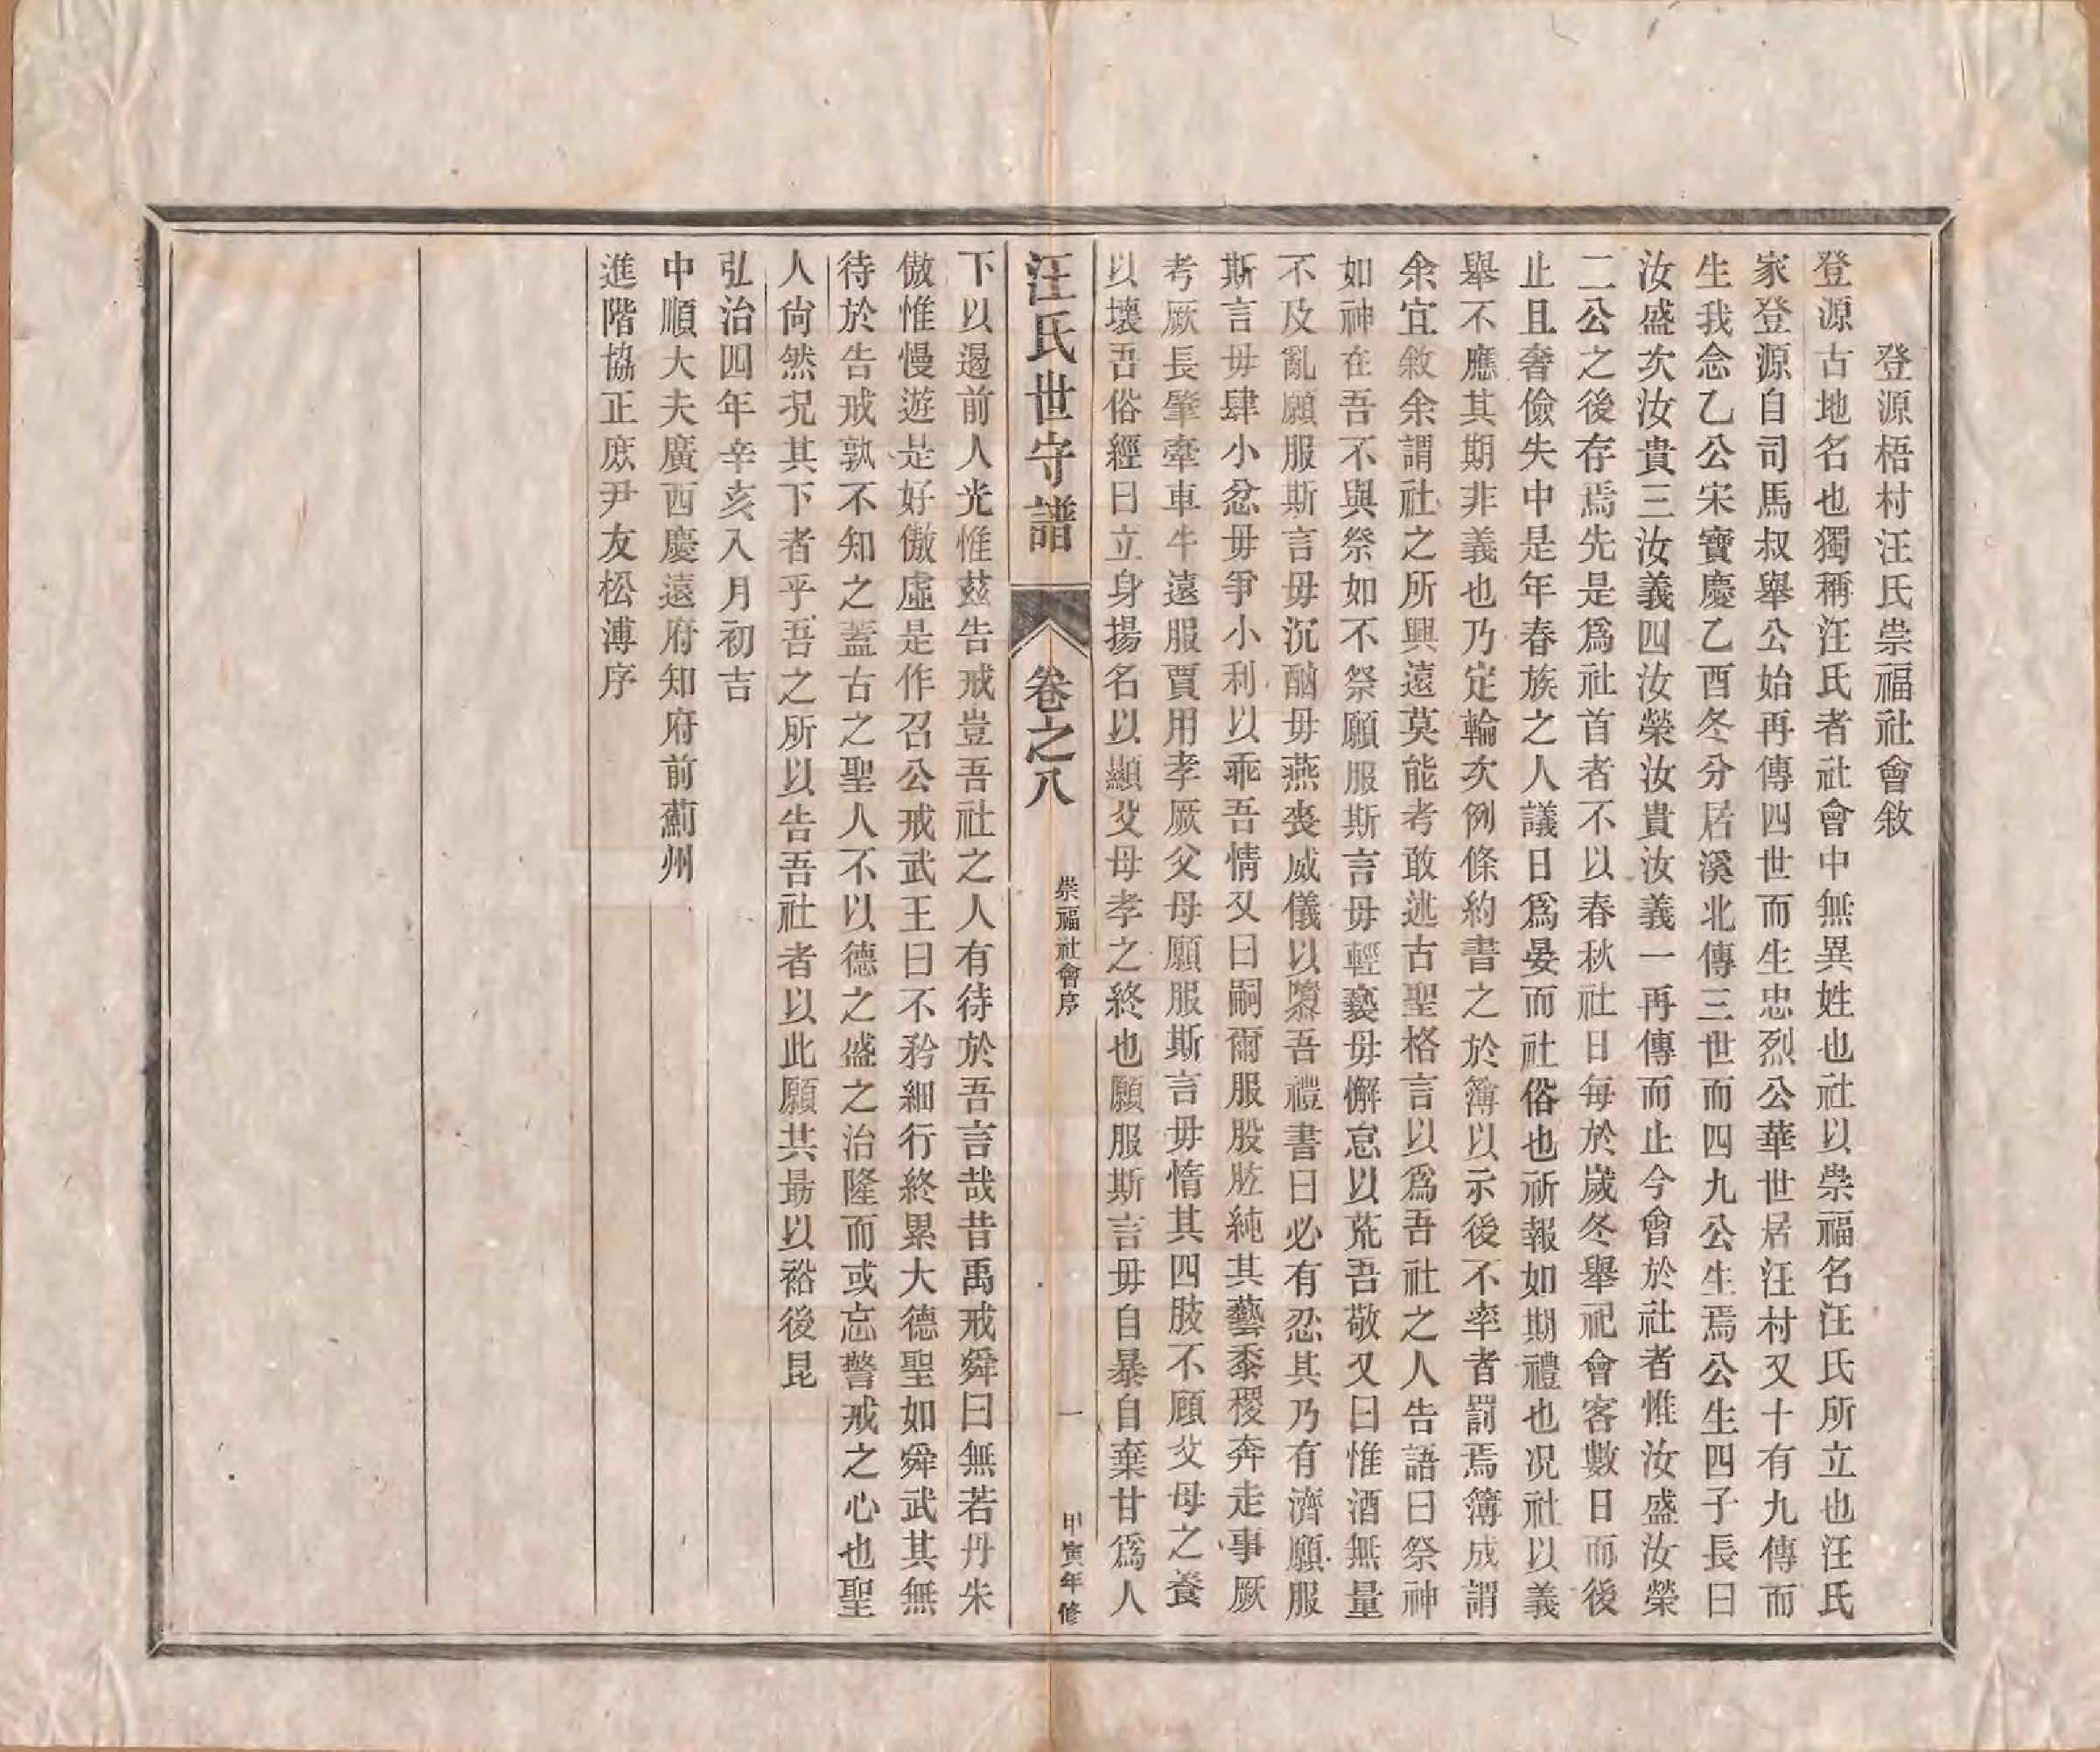 登源梧村汪氏崇福社會敘
登源古地名也獨稱汪氏者社會中無異姓也社以崇福名汪氏所立也汪氏
家登源自司馬叔舉公始再傳四世而生忠烈公華世居汪村又十有九傳而
生我念乙公宋寶慶乙酉冬分居溪北傳三世而四九公生焉公生四子長曰
汝盛次汝貴三汝義四汝榮汝貴汝義一再傳而止今會於社者惟汝盛汝榮
二公之後存焉先是爲社首者不以春秋社日每於歲冬舉祀會客數日而後
止且奢儉失中是年春族之人議日爲晏而社俗也祈報如期禮也况社以義
舉不應其期非義也乃定輪次例條約書之於簿以示後不率者罰焉簿成謂
余宜敘余謂社之所興遠莫能考敢述古聖格言以爲吾社之人告語曰祭神
如神在吾不與祭如不祭願服斯言毋輕褻毋懈怠以荒吾敬又曰惟酒無量
不及亂願服斯言毋沉酗毋燕喪威儀以隳吾禮書曰必有忍其乃有濟願服
斯言毋肆小忿毋爭小利以乖吾情又曰嗣爾服股肱純其藝黍稷奔走事厥
考厥長肇牽車牛遠服賈用孝厥父母願服斯言毋惰其四肢不顧父母之養
以壞吾俗經曰立身揚名以顯父母孝之終也願服斯言毋自暴自棄甘爲人
汪氏世守譜
卷之八
崇福社會序
一
甲寅年修
下以遏前人光惟茲告戒豈吾社之人有待於吾言哉昔禹戒舜曰無若丹朱
傲惟慢遊是好傲虛是作召公戒武王曰不矜細行終累大德聖如舜武其無
待於告戒孰不知之蓋古之聖人不以德之盛之治隆而或忘警戒之心也聖
人尙然况其下者乎吾之所以告吾社者以此願共勗以裕後昆
弘治四年辛亥入月初吉
中順大夫廣西慶遠府知府前薊州
進階協正庶尹友松溥序